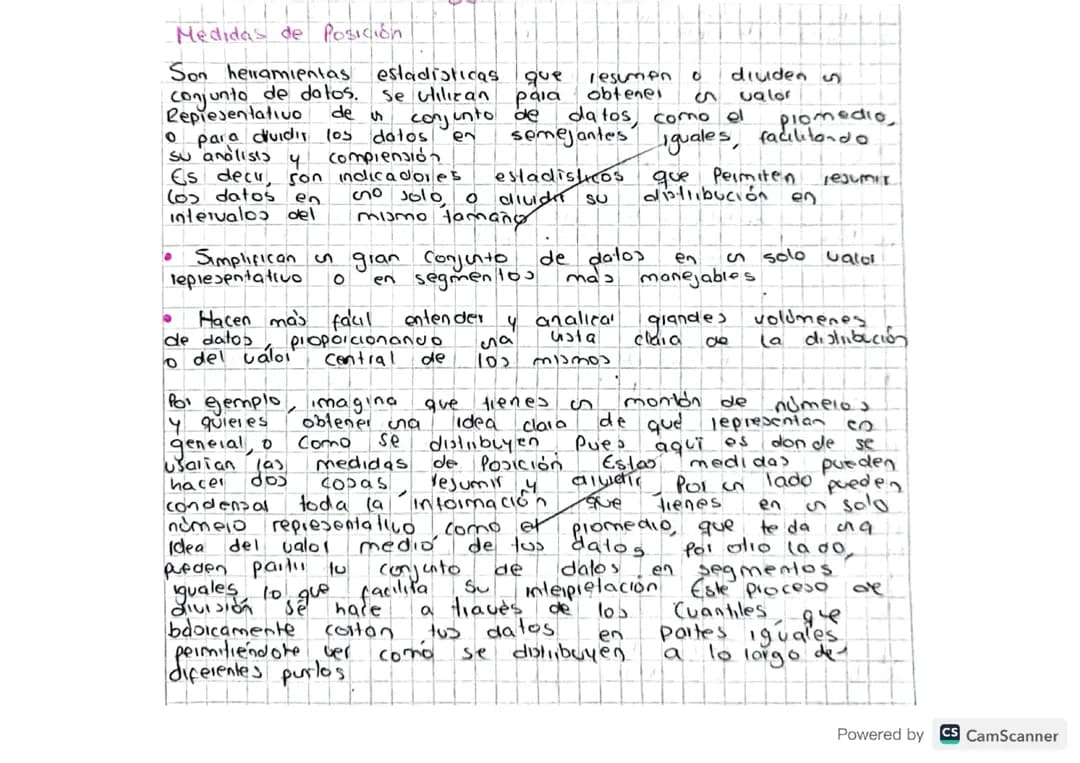 Medidas de Posición
Son herramientas estadísticas que resumen o dividen un
conjunto de datos. Se utilizan para obtener un valor
Representativo de un conjunto de datos, como el promedio,
o para dividir los datos en semejantes iguales, facilitando
su análisis y comprensión
Es decir, son indicadores estadísticos que Permiten resumir
los datos en uno solo, o dividir su distribución en
intervalos del mismo tamaño
• Simplifican un gran Conjunto de datos en un solo valor
representativo o en segmentos más manejables
• Hacen más fácil entender y analizar grandes volúmenes
de datos, proporcionando una vista clara de la distribución
o del valor central de los mismos
Por ejemplo, imagina que tienes un montón de números
y quieres obtener una idea clara de qué representan en
general, o como se distribuyen. Pues aquí es donde se
usarían las medidas de Posición Estas medidas pueden
hacer dos cosas, resumir y dividir. Por un lado pueden
condensar toda la información que tienes en un solo
número representativo, como el promedio, que te da una
Idea del valor medio de tus datos Por otro lado,
pueden partir tu conjunto de datos en segmentos
iguales, lo que facilita su interpretación Este proceso de
división se hace a través de los Cuantiles, que
básicamente cortan tus datos en partes iguales
permitiéndote ver como se distribuyen a lo largo de
diferentes puntos
Powered by CS CamScanner